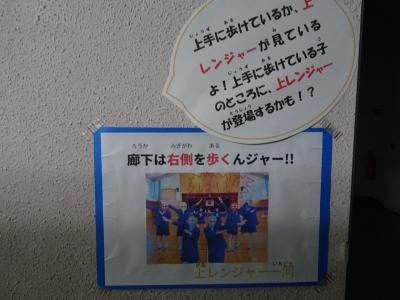 上手に歩けているか、上
レンジャーが見ている
よ！上手に歩けている子
のところに、上レンジャー
が登場するかも！？
廊下は右側を歩くんジャー!!
上レンジャー一同